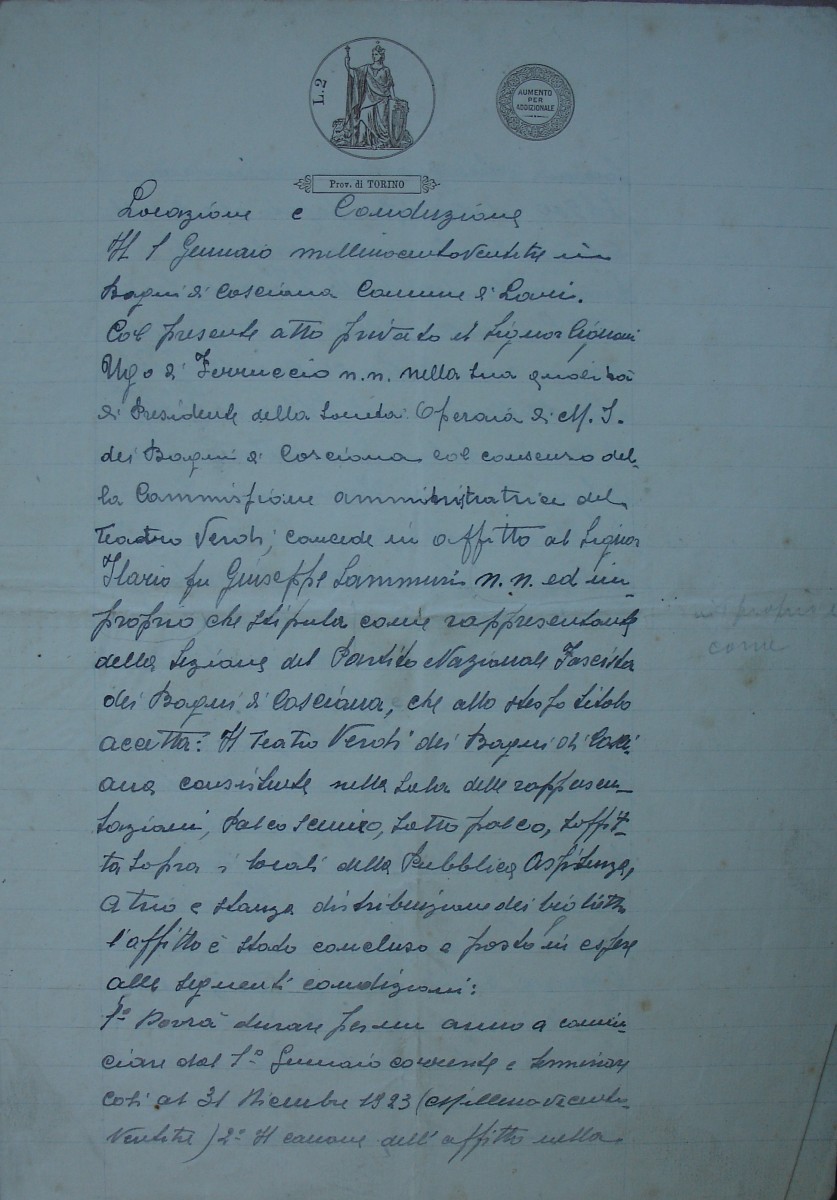 L.2
AUMENTO
PER
ADDIZIONALE
Prov. di TORINO
Locazione e Conduzione
Il 1 Gennaio millenovecentoventitre in
Bagni di Casciana Comune di Lari.
Col presente atto privato il Signor
Ugo di Ferruccio n.n. nella sua qualità
di Presidente della Società Operaia di M. S.
dei Bagni di Casciana col consenso del-
la Commissione amministratrice del
Teatro Verdi, concede in affitto al Signor
Ilario fu Giuseppe Sammuri n.n. ed in
proprio che stipula come rappresentante
in proprio e
come
della Sezione del Partito Nazionale Fascista
dei Bagni di Casciana, che allo stesso titolo
accetta: Il Teatro Verdi dei Bagni di Casci-
ana consistente nella Sala delle rappresen-
tazioni, Palco Scenico, Sotto palco, Soffit-
ta sopra i locali della Pubblica Assistenza,
atrio e stanza distribuzione dei biglietti
l'affitto è stato concluso e posto in essere
alle seguenti condizioni:
1º Dovrà durare per un anno a comin-
ciare dal 1º Gennaio corrente e terminare
così al 31 Dicembre 1923 (
ventitre) 2º Il canone dell'affitto nella